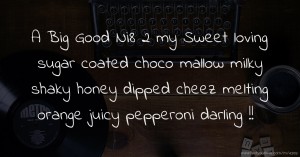 A Big Good Ni8 2 my Sweet loving
sugar coated choco mallow milky
shaky honey dipped cheez melting
orange juicy pepperoni darling !!